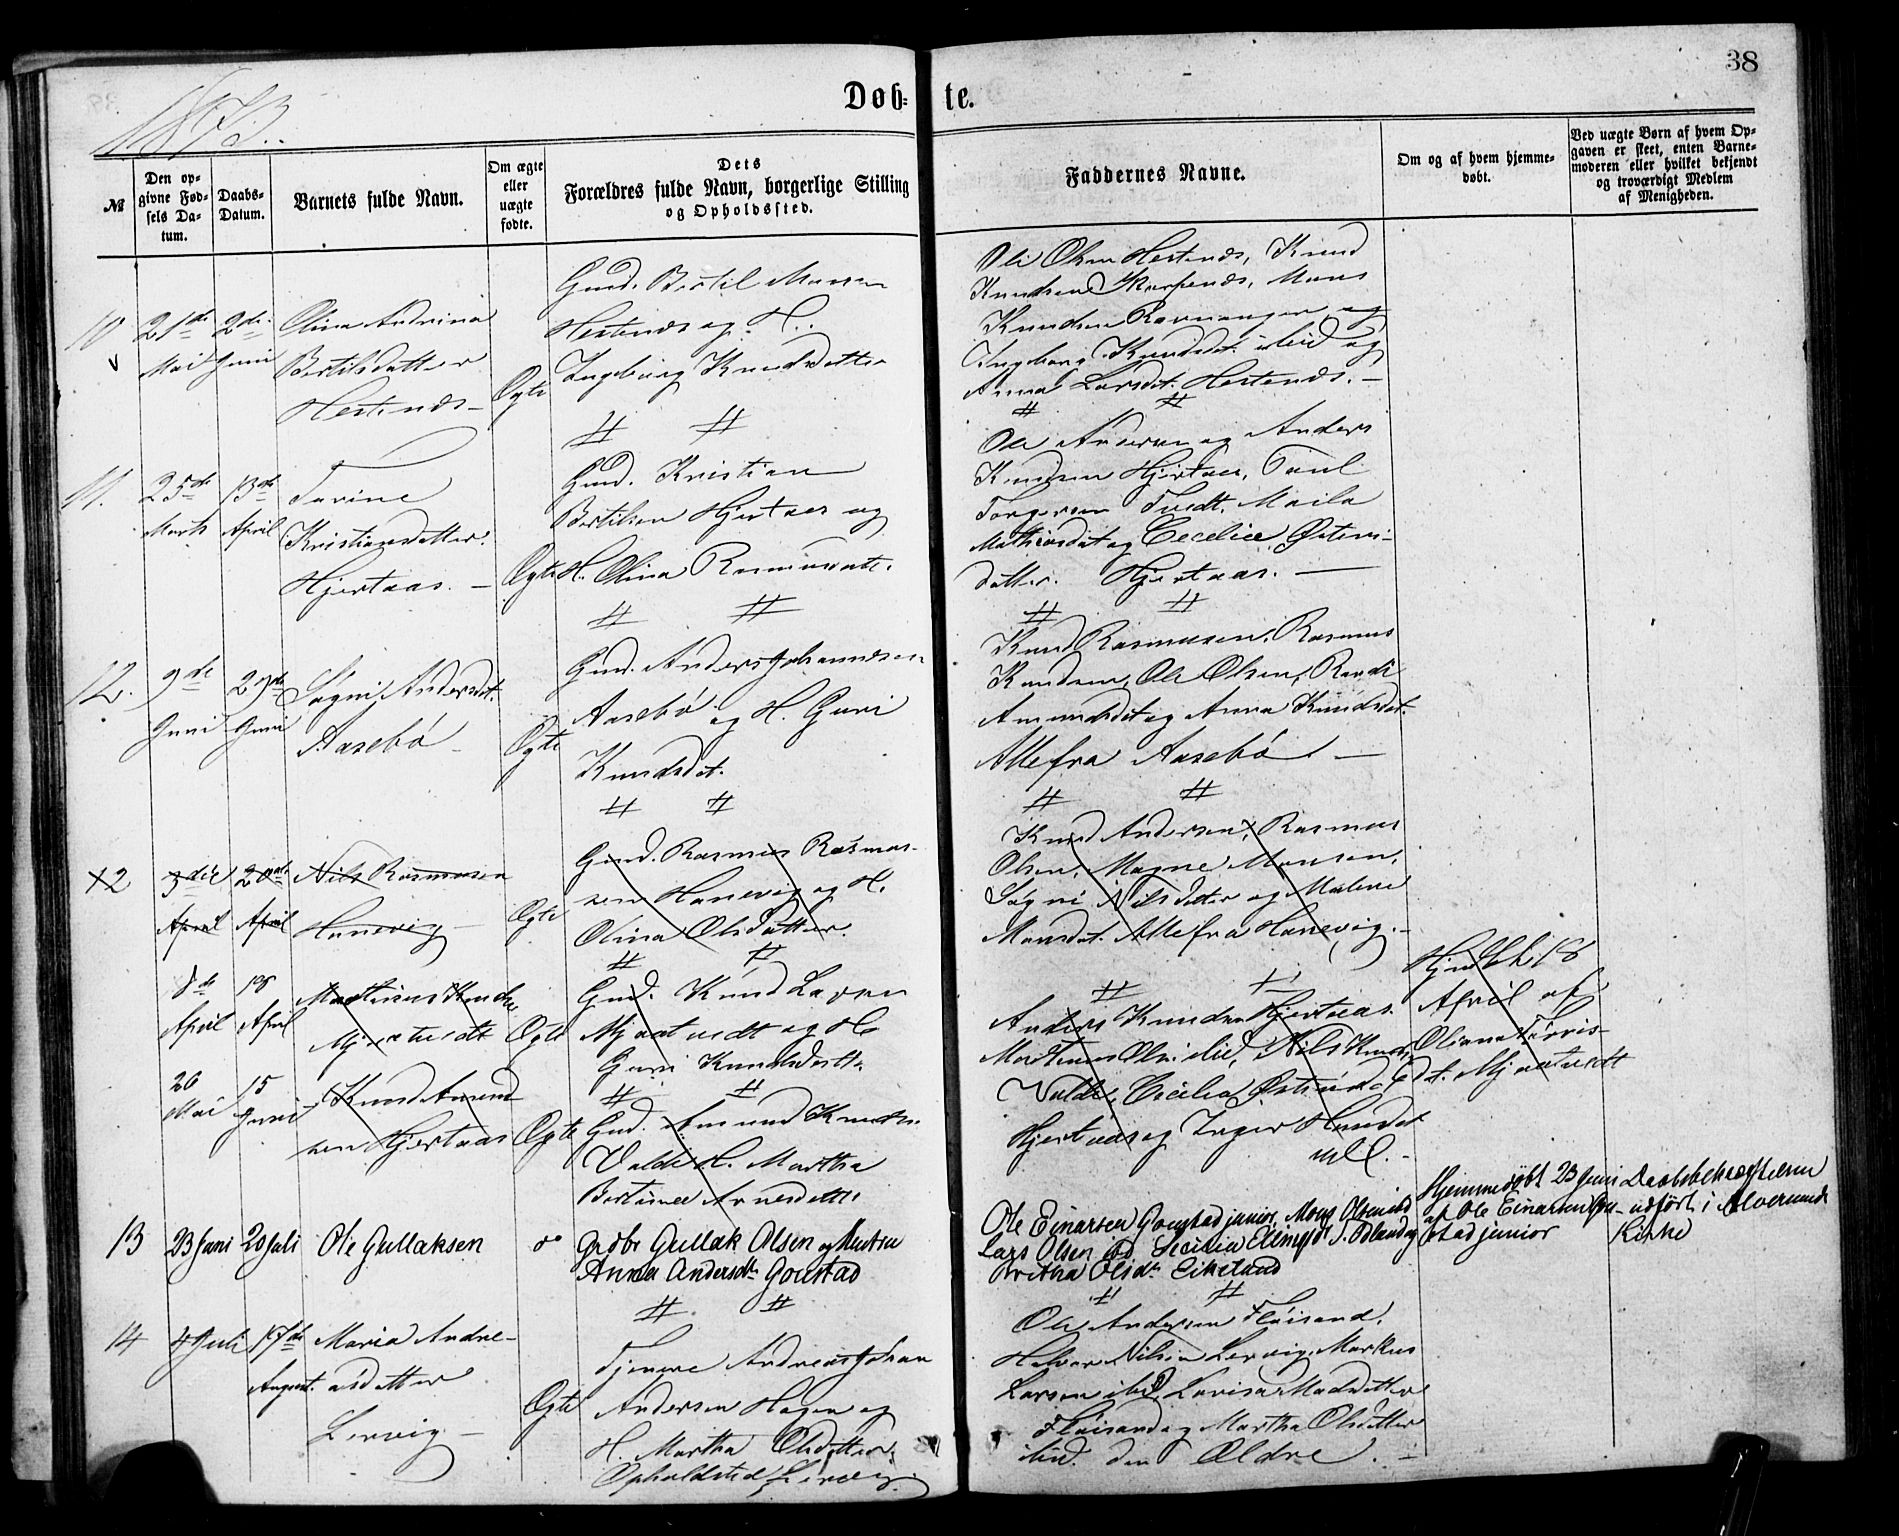 38
1873.
Døb- te.
№
Den op-
givne Fød-
sels Da-
tum.
Daabs-
Datum.
Barnets fulde Navn.
Om ægte
eller
uægte
fødte.
Dets
Forældres fulde Navn, borgerlige Stilling
og Opholdssted.
Faddernes Navne.
Om og af hvem hjemme-
døbt.
Ved uægte Børn af hvem Op-
gaven er skeet, enten Barne-
moderen eller hvilket bekjendt
og troværdigt Medlem
af Menigheden.
10
21de
Mai
2den
Juni
Olina Andrina
Bertilsdatter
Hestenæs
Ægte
Gmd. Bertil Monsen
Hestenæs og H.
Ingeborg Knudsdatter
Ole Olsen Hestenæs, Knud
Knudsen Skarpenæs, Mons
Knudsen Ravnanger, og
Ingeborg Knudsdt. ibid og
Anna Larsdt. Hestenæs.
11.
25de
Marts
13de
April
Tarine
Kristiansdatter
Hjertaas.
Ægte
Gmd. Kristian
Bertilsen Hjertaas og
H. Olina Rasmusdatt.
Ole Andersen og Anders
Knudsen Hjertaas,
Torgersen Tvedt,
Mathiasdat og Cecelie Østens-
datter. Hjertaas.
12.
9de
Juni
29de
Juni
Søgni Andersdt.
Aasebø
Ægte
Gmd. Anders Johannesen
Aasebø og H. Guri
Knudsdt.
Knud Rasmusen, Rasmus
Knudsen, Ole Olsen, Randi
Amundsdt og Anna Knudsdt.
Alle fra Aasebø
12
3die
April
20de
April
Nils Rasmusen
Hanevig
Ægte
Gmd. Rasmus Rasmus-
sen Hanevig og H.
Olina Olsdatter.
Knud Andersen, Rasmus
Olsen, Magne Monsen,
Søgni Nilsdatter og Malene
Monsdt. Alle fra Hanevig.
8de
April
18
April
Martinus Knudsen
Mjaatvedt
Ægte
Gmd. Knud Larsen
Mjaatvedt og H.
Guri Knudsdatt.
Anders Knudsen Hjertaas.
Martinus Olsen ibid, Nils Knuds.
Valde, Cicilia Østensd.
Hjertaas og Inger
Hjmdbt 18
April af
Oliana
dt. Mjaatvedt
26
Mai
15
Juni
Knud Amund-
sen Hjertaas
Ægte
Gmd. Amund Knudsen
Valde H. Martha
Bertinee Arnesdatter
13
23 Juni
20 Juli
Ole Gullaksen
Grdbr Gullak Olsen og Hustru
Anna Andersdtr Goustad
Ole Einarsen Goustad junior, Mons Olsen ibd
Lars Olsen ibd Cecilia
Britha Olsdtr Eikeland
Hjemmedøbt 23 Juni
af Ole Einarsen Gou-
stad junior
Daabsbekræftelsen
udført i Alversunds
Kirke
14
4 Juli
17de
August.
Maria Andre-
asdatter
Lervig
Ægte
Tjenere Andreas Johan
Andersen Hagen og
H. Martha Olsdatter.
Opholdsted Lervig.
Ole Andersen Fløisand,
Halvor Nilsen Lervig, Markus
Larsen ibd, Lovisa Madsdatter
Fløisand og Martha Olsdatter
ibid. den Ældre.